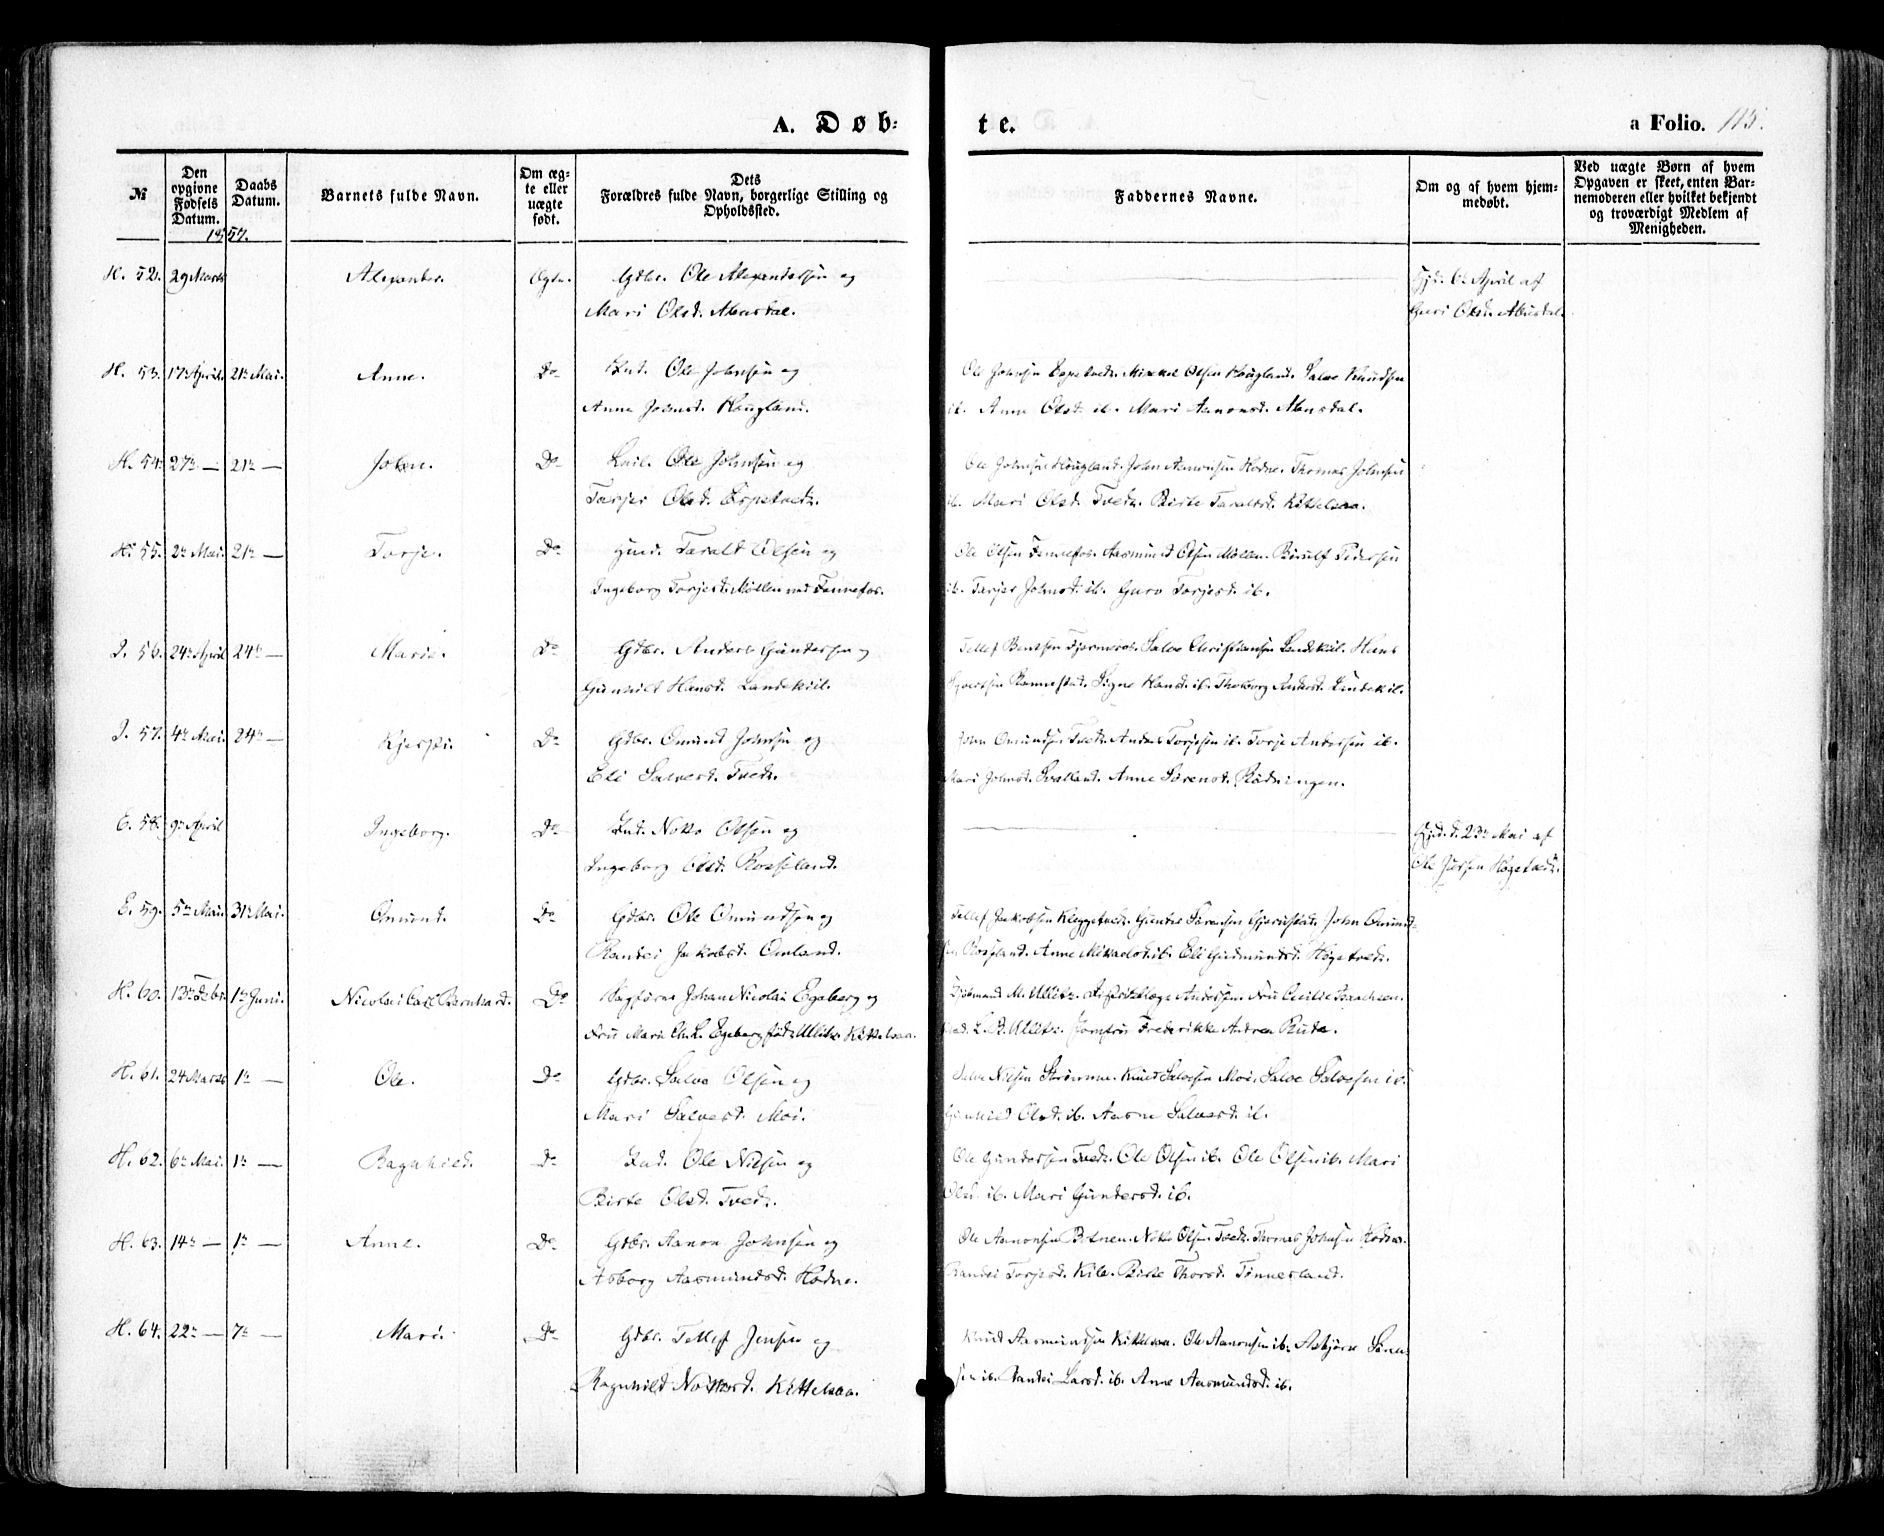 A. Døb:
te.
a Folio. 115.
№
Den opgivne Fødsels Datum.
Daabs Datum.
Barnets fulde Navn.
Om ægte eller uægte født.
Dets Forældres fulde Navn, borgerlige Stilling og Opholdssted.
Faddernes Navne.
Om og af hvem hjemmedøbt.
Ved uægte Børn af hvem Opgaven er skeet, enten Barnemoderen eller hvilket bekjendt og troværdigt Medlem af Menigheden.
1857.
H. 52. 29 Marts Alexander. Ægte. Gdbr. Ole Alexandersen og
Mari Olsd. Abusdal.
Hjd. 6te April af
Guri Olsd. Abusdal.
H. 53. 17de April. 21de Mai. Anne. Do Ind. Ole Johnsen og
Anne Johnsd. Hougland.
Ole Johnsen Espetvedt. Mikkel Olsen Hougland. Salve Knudsen
ib. Anne Olsd. ib. Mari Aanonsd. Abusdal.
H. 54. 27de — 21de — John. Do Ole Johnsen og
Tarjer Olsd. Espetvedt.
Ole Johnsen Hougland. John Aanonsen Hodne. Thomas Johnsen
ib. Mari Olsd. Tvedt. Birte Taraldsd. Kittelsaa.
H. 55. 2de Mai. 21de — Torje. Do Huusm. Tarald Olsen og
Ingeborg Torjesd. Møllen ved Fennefos.
Ole Olsen Fennefos. Aasmund Olsen Møllen. Birulf Pedersen
ib. Tarjer Johnsd. ib. Guro Torjesd. ib.
I. 56. 24de April 24de — Marie. Do Gdbr. Anders Gundersen og
Gunhild Hansd. Landekiil.
Tellef Bentsen Fjermeros. Salve Christiansen Landekiil. Hans
Signe Hansd. ib. Thoborg Andersd. Landekiil.
I. 57. 4de Mai. 24de — Kjersti. Do Gdbr. Omund Johnsen og
Eli Salvesd. Tvedt.
John Omundsen Tvedt. Anders Torjesen ib. Torje Andersen ib.
Mari Johnsd. Anne Sørensd. Rødningen.
E. 58. 9de April Ingeborg. Do Ind. Notto Olsen og
Ingeborg Olsd. Rosseland.
Hjd. d. 23de Mai af
Ole Høgetvedt.
E. 59. 5te Mai. 31te Mai. Omund. Do Gdbr. Ole Omundsen og
Randei Jakobsd. Omland.
Tellef Jakobsen Kleggetvedt. Gunder Sørensen John Omund-
sen Rosseland. Anne Mikkelsd. ib. Eli Gudmundsd. Høgetvedt.
H. 60. 13de Febr. 1ste Juni. Nicolai Carl Bernhard. Do Sagfører Johan Nicolai Egeberg og
Fru Maria Ch. L. Egeberg født Ullitz Kittelsaa.
Kjøbmand M. Ullitz. Distriktslæge Andersen. Fru Cecilie Isaachsen.
L. B. Ullitz. Jomfru Frederikke Andrea Rude.
H. 61. 24 Marts 1ste — Ole. Do Gdbr. Salve Olsen og
Mari Salvesd. Moi.
Salve Nilsen Strømme. Knud Salvesen Moi. Salve Salvesen ib.
Gunhild Olsd. ib. Aasne Salvesd. ib.
H. 62. 6te Mai. 1ste — Ragnhild. Do Ind. Ole Nilsen og
Birte Olsd. Tvedt.
Ole Gundersen Tvedt. Ole Olsen ib. Ole Olsen ib. Mari
Olsd. ib. Mari Gundersd. ib.
H. 63. 14de — 1ste — Anne. Do Gdbr. Aanon Johnsen og
Asborg Aasmundsd. Hodne.
Ole Aanonsen Notto Olsen Tvedt. Thomas Johnsen Hodne.
Randei Torjesd. Kile. Birte Thorsd. Tønnesland.
H. 64. 22de — 7de — Mari. Do Gdbr. Tellef Jensen og
Ragnhild Nottosd. Kittelsaa.
Knud Aasmundsen Kittelsaa. Ole Aanonsen ib. Asbjørn
sen ib. Randei Larsd. ib. Anne Aasmundsd. ib.